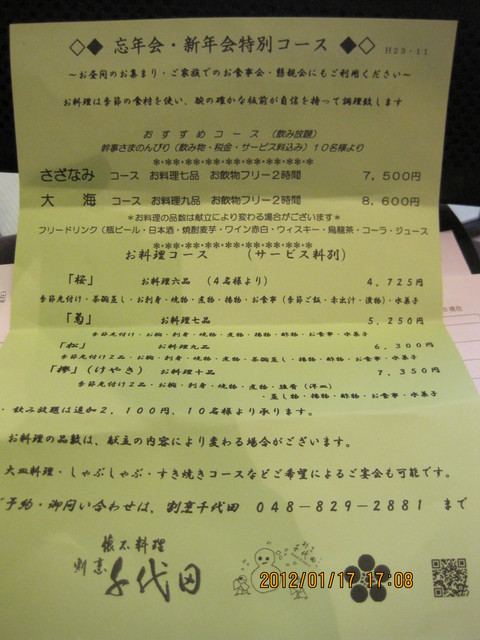 ◇◆ 忘年会・新年会特別コース ◆◇ H23・11
～お昼間のお集まり・ご家族でのお食事会・懇親会にもご利用ください～
お料理は季節の食材を使い、腕の確かな板前が自信を持って調理致します
おすすめコース (飲み放題)
幹事さまのんびり(飲み物・税金・サービス料込み)10名様より
さざなみ コース お料理七品 お飲物フリー2時間 7,500円
大 海 コース お料理九品 お飲物フリー2時間 8,600円
*お料理の品数は献立により変わる場合がございます*
フリードリンク(瓶ビール・日本酒・焼酎麦芋・ワイン赤白・ウィスキー・烏龍茶・コーラ・ジュース
お料理コース (サービス料別)
「桜」 お料理六品 (4名様より) 4,725円
季節先付け・茶碗蒸し・お刺身・焼物・煮物・揚物・お食事(季節ご飯・赤出汁・漬物)・水菓子
「菊」 お料理七品 5,250円
季節先付け・お椀・刺身・焼物・煮物・揚物・酢物・お食事・水菓子
「松」 お料理九品 6,300円
季節先付け2品・お椀・刺身・焼物・煮物・茶碗蒸し・揚物・酢物・お食事・水菓子
「欅」(けやき) お料理十品 7,350円
季節先付け2品・お椀・刺身・焼物・煮物・強肴(洋皿)
・蒸し物・揚物・酢物・お食事・水菓子
・飲み放題は追加2,100円、10名様より承ります。
お料理の品数は、献立の内容により変わる場合がございます。
大皿料理・しゃぶしゃぶ・すき焼きコースなどご希望によるご宴会も可能です。
ご予約・御問い合わせは、割烹千代田 048-829-2881 まで
懐石料理
割烹
千代田
2012/01/17 17:08